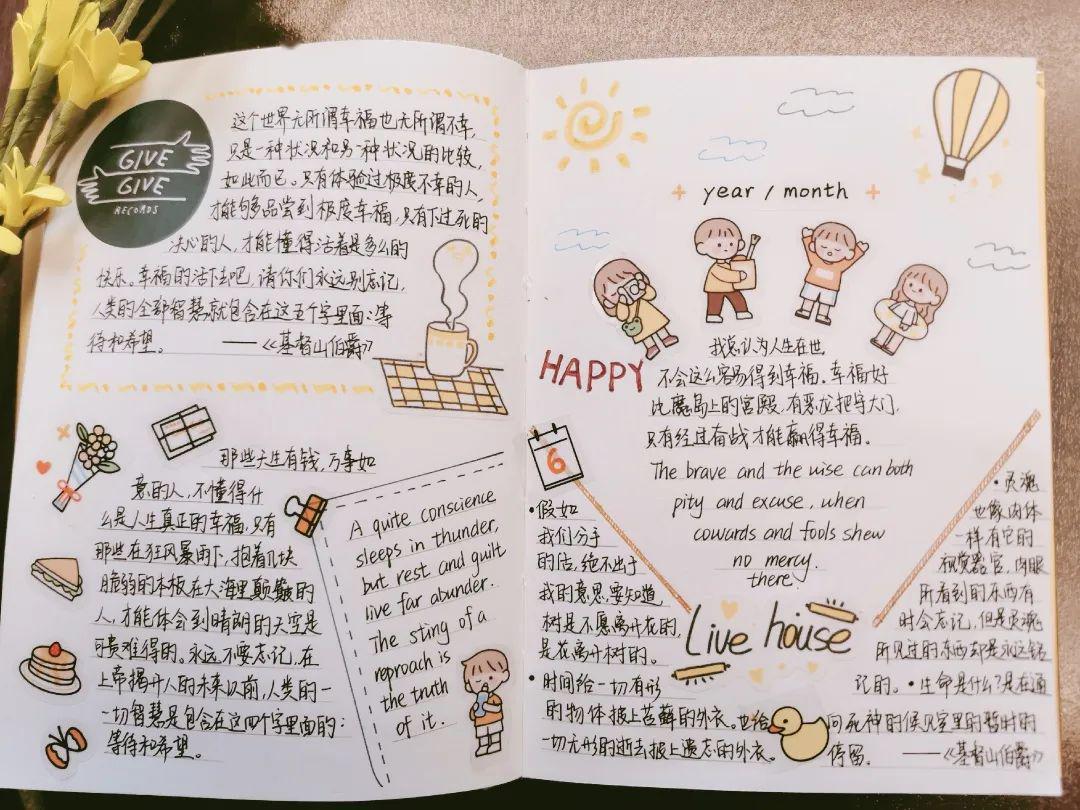 GIVE
GIVE
RECORDS
这个世界无所谓幸福也无所谓不幸,
只是一种状况和另一种状况的比较,
如此而已。只有体验过极度不幸的人,
才能够品尝到极度幸福,只有下过死的
决心的人,才能懂得活着是多么的
快乐。幸福的活下去吧,请你们永远别忘记,
人类的全部智慧就包含在这五个字里面:等
待和希望。 ——《基督山伯爵》
那些天生有钱,万事如
意的人,不懂得什
么是人生真正的幸福,只有
那些在狂风暴雨下,抱着几块
脆弱的木板在大海里颠簸的
人,才能体会到晴朗的天空是
可贵难得的。永远不要忘记,在
上帝揭开人的未来以前,人类的一
一切智慧是包含在这四个字里面的:
等待和希望。
A quite conscience
sleeps in thunder,
but rest and guilt
live far abunder.
The sting of a
reproach is
the truth
of it.
year / month
HAPPY
我总认为人生在世,
不会这么容易得到幸福。幸福好
比魔岛上的宫殿,有恶龙把守大门,
只有经过奋战才能赢得幸福。
The brave and the wise can both
pity and excuse, when
cowards and fools shew
no mercy.
there
Live house
6
•假如
我们分手
的话,绝不出于
我的意思,要知道,
树是不愿离开花的,
是花离开树的。
•时间给一切有形
的物体披上苔藓的外衣。也给
一切无形的逝去披上遗忘的外衣。
•灵魂
也像肉体
一样有它的
视觉器官,肉眼
所看到的东西有
时会忘记,但是灵魂
所见过的东西却是永远铭
记的。•生命是什么?是在通
向死神的候见室里的暂时的
停留。 ——《基督山伯爵》